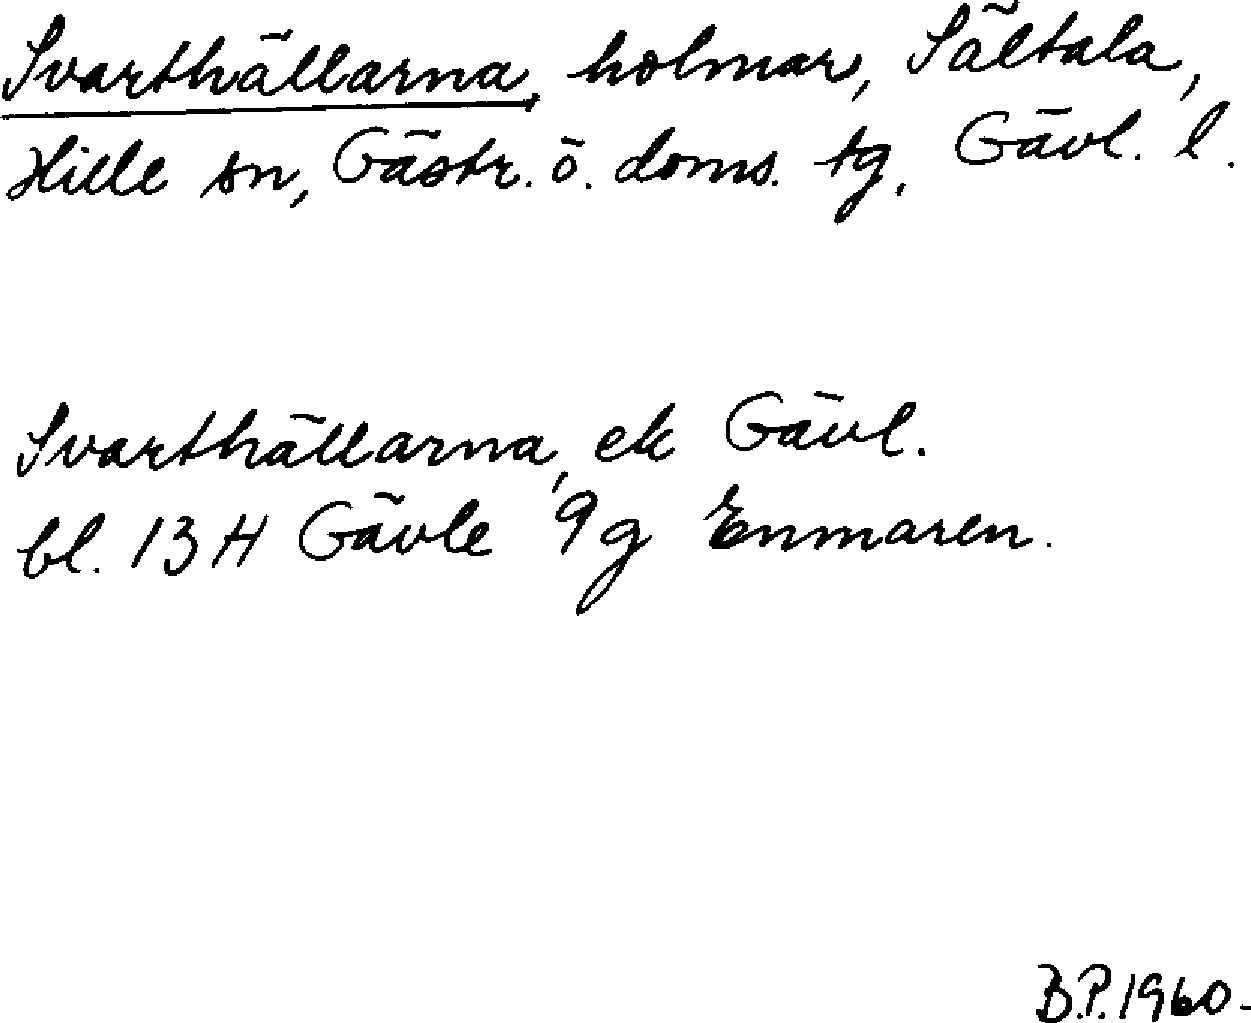 Svarthällarna, holmar, Sältala,
Hille sn, Gästr. ö. doms. tg, Gävl. l.
Svarthällarna, ek Gävl.
bl. 13 H Gävle 9g Enmaren.
B.P. 1960.